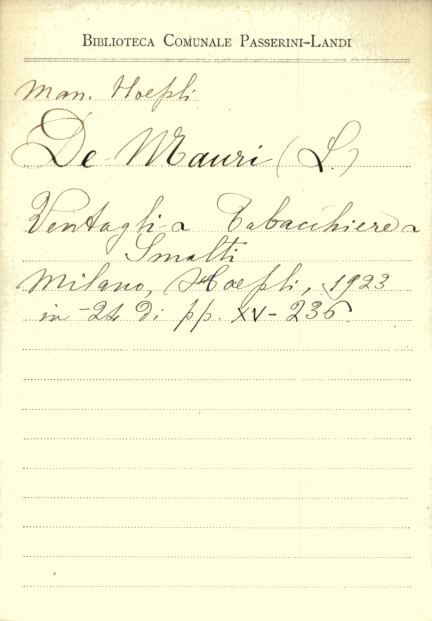 BIBLIOTECA COMUNALE PASSERINI-LANDI
Man. Hoepli
De Mauri (L.)
Ventagli - Tabacchiere -
Smalti
Milano, Hoepli, 1923
in-24 di pp. XV-236.